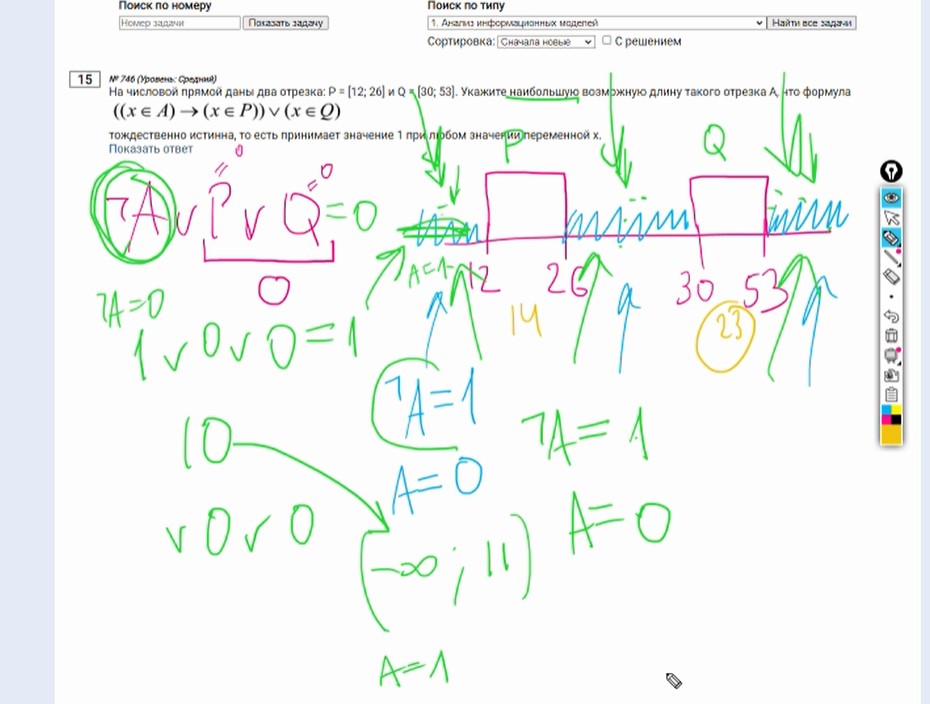 Поиск по номеру
Поиск по типу
Номер задачи
Показать задачу
1. Анализ информационных моделей
Найти все задачи
Сортировка: Сначала новые
С решением
15
№ 746 (Уровень: Средний)
На числовой прямой даны два отрезка: P = [12; 26] и Q = [30; 53]. Укажите наибольшую возможную длину такого отрезка A, что формула
((x ∈ A) → (x ∈ P)) ∨ (x ∈ Q)
тождественно истинна, то есть принимает значение 1 при любом значении переменной x.
Показать ответ
P
Q
=0
=0
¬A ∨ P ∨ Q = 0
0
A=1
12
26
30
53
14
23
¬A=0
1 ∨ 0 ∨ 0 = 1
¬A=1
A=0
¬A=1
A=0
10
∨ 0 ∨ 0
(-∞; 11)
A=1